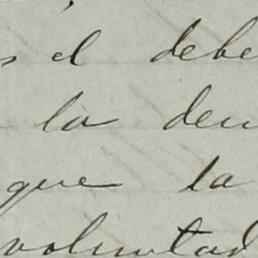 el debe
la den
que la
voluntad